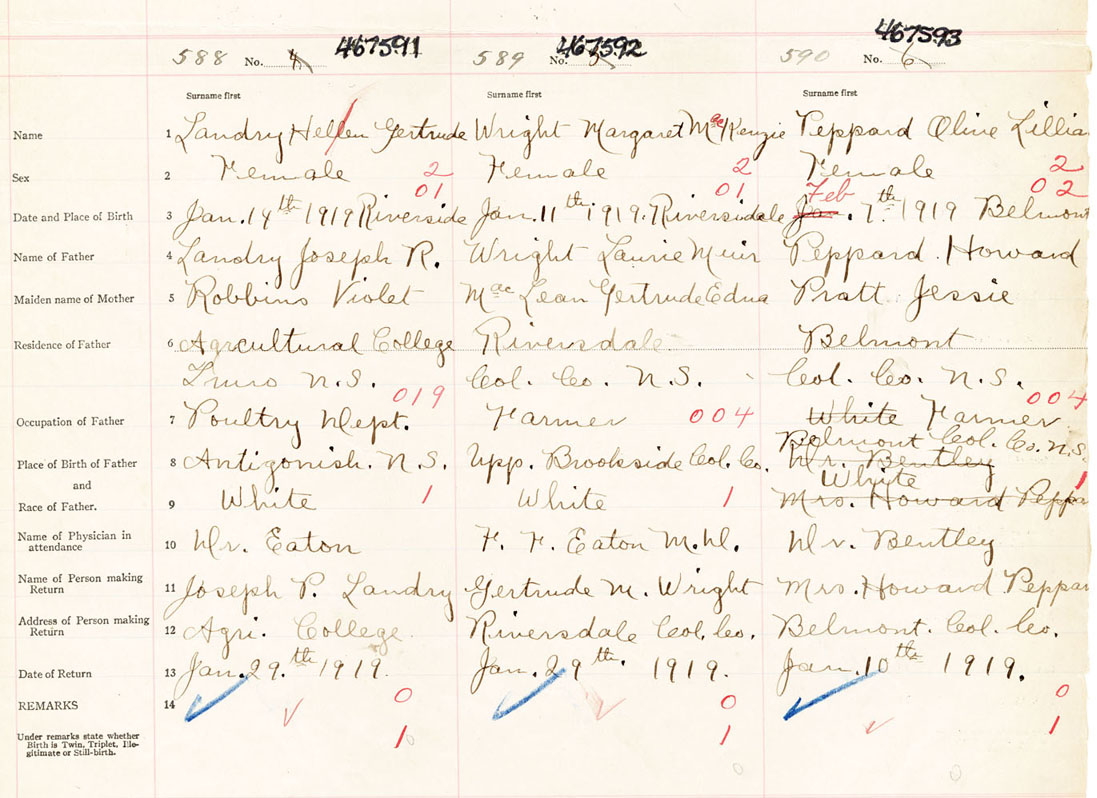 467591 467592 467593
588 No. 4 589 No. 5 590 No. 6
Surname first Surname first Surname first
Name 1 Landry Hellen Gertrude Wright Margaret MacKenzie Peppard Olive Lillia
Sex 2 Female 2 Female 2 Female 2
01 01 Feb 02
Date and Place of Birth 3 Jan. 14th 1919 Riverside Jan. 11th 1919. Riversidale Jan. 7th 1919 Belmont
Name of Father 4 Landry Joseph R. Wright Laurie Muir Peppard. Howard
Maiden name of Mother 5 Robbins Violet MacLean Gertrude Edna Pratt Jessie
Residence of Father 6 Agrcultural College Riversdale Belmont
Truro N.S. Col. Co. N.S. Col. Co. N.S.
019 004
Occupation of Father 7 Poultry Dept. Farmer 004 White Farmer
Belmont Col. Co. N.S.
Place of Birth of Father 8 Antigonish. N.S. Upp. Brookside Col. Co. Dr. Bentley
and White 1
Race of Father. 9 White 1 White 1 Mrs. Howard Peppa
Name of Physician in
attendance 10 Dr. Eaton F. F. Eaton M.D. Dr. Bentley
Name of Person making
Return 11 Joseph P. Landry Gertrude M. Wright Mrs. Howard Peppar
Address of Person making
Return 12 Agri. College. Riversdale Col. Co. Belmont. Col. Co.
Date of Return 13 Jan. 29.th 1919. Jan. 29th. 1919. Jan. 10th 1919.
REMARKS 14 0 0 0
Under remarks state whether
Birth is Twin, Triplet, Ille-
gitimate or Still-birth. 1 0 1 1
0 0